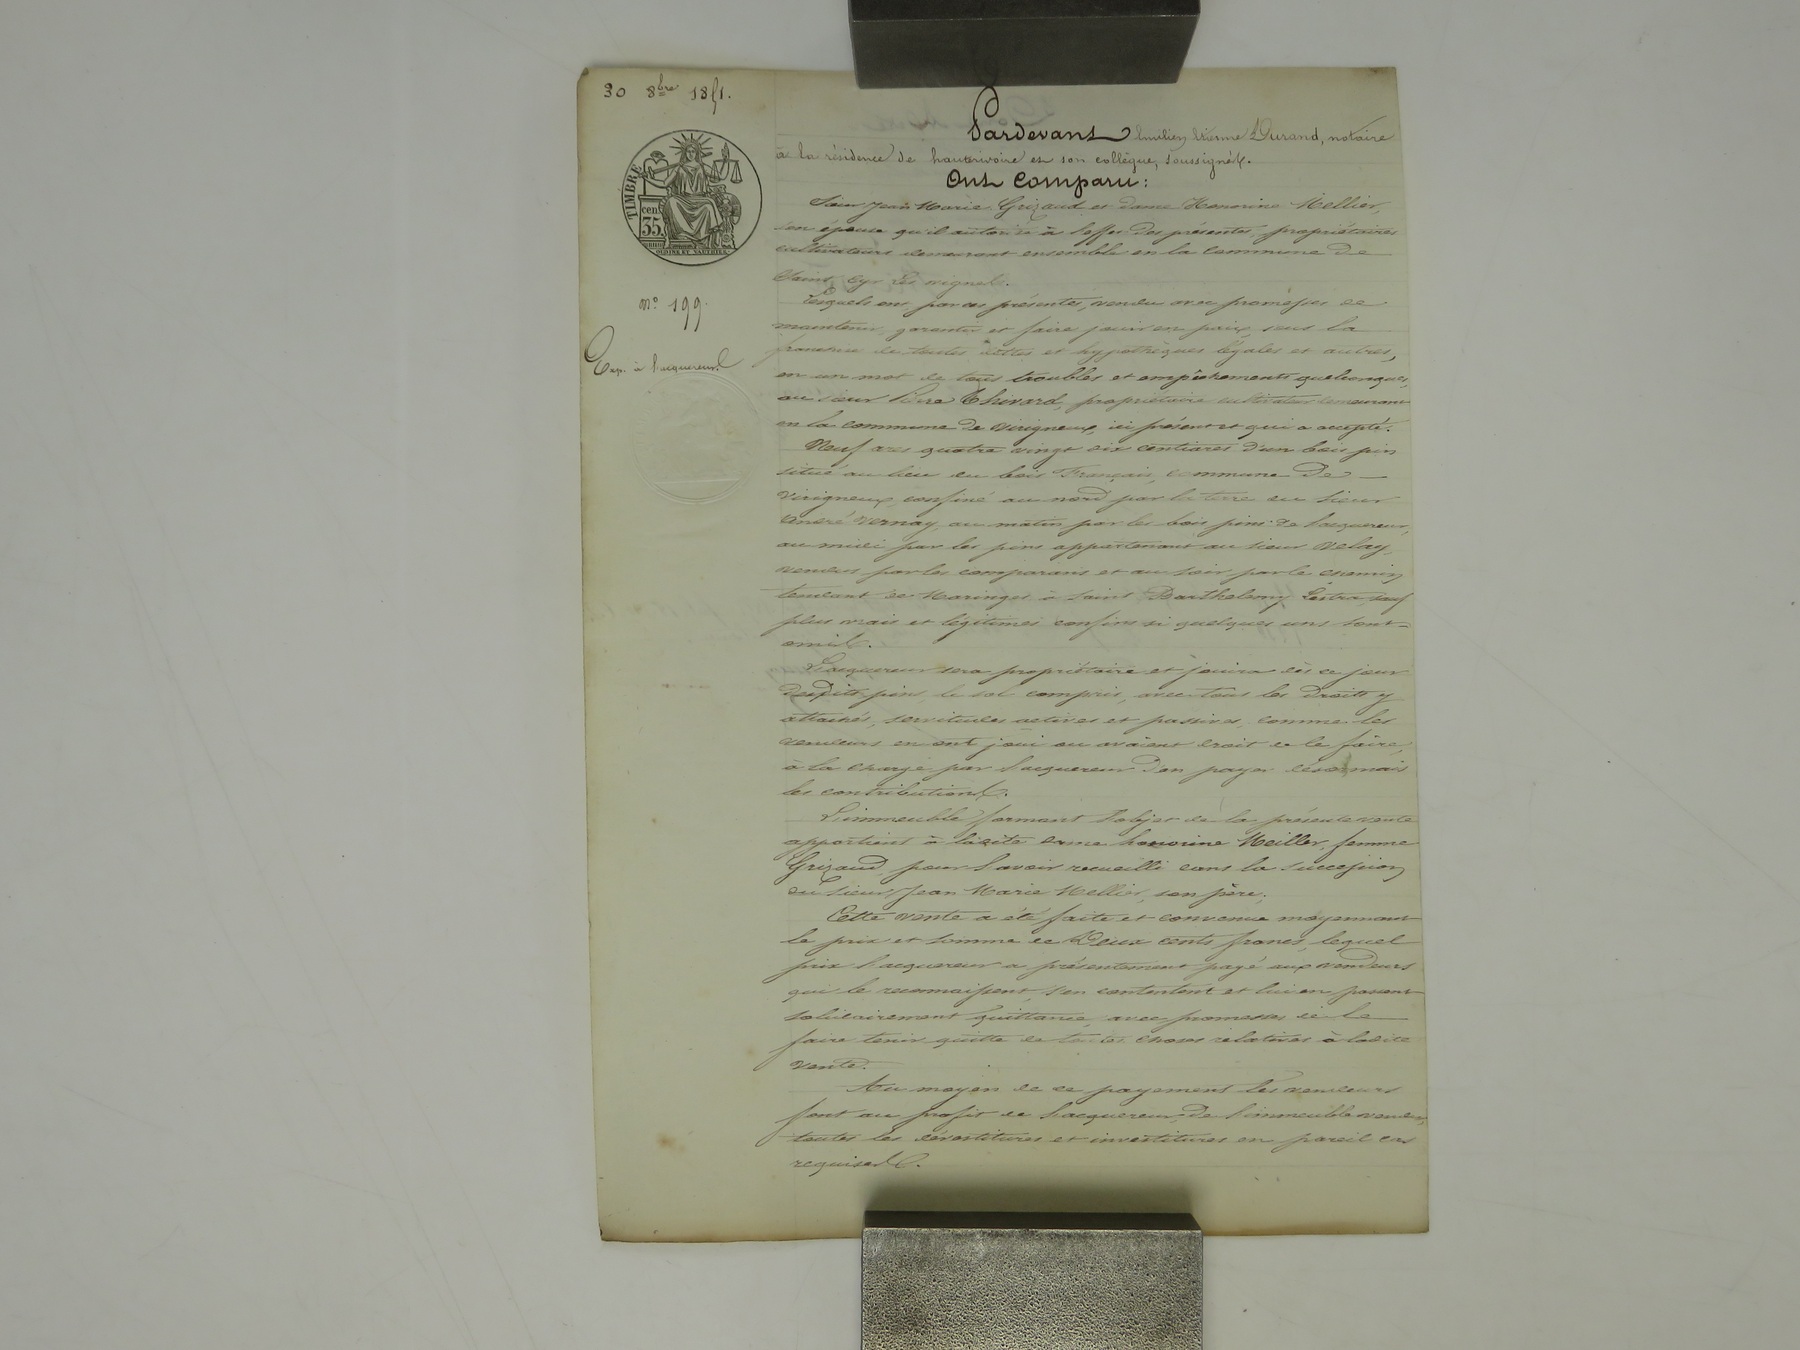 30 8bre 1851.
TIMBRE
cen.
35.
Nº 199.
Exp. à l'acquereur
Pardevant Emilien Etienne Durand, notaire
à la résidence de hauterivoire et son collègue, soussignés.
Ont Comparu:
Sieur Jean Marie Grizaud et dame Honorine Mellier,
son épouse qu'il autorise à l'effet des présentes, propriétaires
cultivateurs demeurant ensemble en la commune de
Saint Cyr les vignes.
Lesquels ont par ces présentes, vendu avec promesses de
maintenir, garantir et faire jouir en paix, sous la
franchise de toutes dettes et hypothèques légales et autres,
en un mot de tous troubles et empêchements quelconques,
au sieur Pierre Thivard, propriétaire cultivateur demeurant
en la commune de virigneux, ici présent et qui a accepté.
Neuf ares quatre vingt six centiares d'un bois pin
situé au lieu du bois Français, commune De
Virigneux, confiné au nord par la terre du sieur
André Vernay, au matin par les bois pins de l'acquereur,
au midi par les pins appartenant au sieur Velay,
vendus par les comparans et au soir par le chemin
tendant de Maringes à Saint Barthelemy Lestra, sauf
plus vrais et légitimes confins si quelques uns sont
omis.
L'acquereur sera propriétaire et jouira dès ce jour
desdits pins, le sol compris, avec tous les droits y
attachés, servitudes actives et passives, comme les
vendeurs en ont joui ou avaient droit de le faire,
à la charge par l'acquereur d'en payer désormais
les contributions.
L'immeuble formant l'objet de la présente vente
appartient à ladite dame honorine Meiller, femme
Grizaud, pour l'avoir recueilli dans la succession
du sieur Jean Marie Mellier, son père.
Cette vente a été faite et convenue moyennant
le prix et somme de Deux cents francs, lequel
prix l'acquereur a présentement payé aux vendeurs
qui le reconnaissent, s'en contentent et lui en passent
solidairement quittance, avec promesses de le
faire tenir quitte de toutes choses relatives à ladite
vente.
Au moyen de ce payement les vendeurs
font au profit de l'acquereur, de l'immeuble vendu,
toutes les dévestitures et investitures en pareil cas
requises.